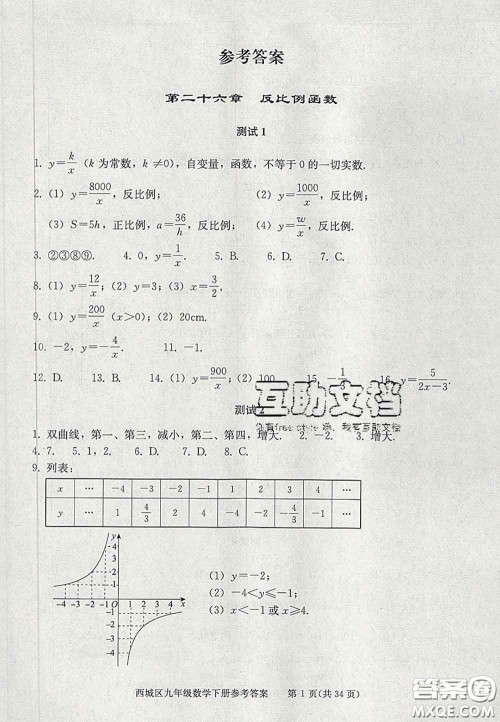 参考答案
第二十六章 反比例函数
测试1
1. y=k/x（k 为常数，k≠0），自变量，函数，不等于 0 的一切实数.
2. (1) y=8000/x，反比例； (2) y=1000/x，反比例；
(3) S=5h，正比例，a=36/h，反比例； (4) y=w/x，反比例.
3. ②③⑧⑨. 4. 0，y=1/x. 5. B. 6. D. 7. C.
8. (1) y=12/x；(2) y=3；(3) x=3/2.
9. (1) y=200/x (x>0)；(2) 20cm.
10. -2，y=-4/x. 11. -1.
12. D. 13. B. 14. (1) y=900/x；(2) 100 15. -1/3 16. y=5/(2x-3).
测试2
1. 双曲线，第一、第三，减小，第二、第四，增大. 2. -2. 3. 增大.
4. 7. 5. 1，2. 6. D. 7. D. 8. C.
9. 列表：
x … -4 -3 -2 -1 1 2 3 4 …
y … 1 4/3 2 4 -4 -2 -4/3 -1 …
(1) y=-2；
(2) -4<y≤-1；
(3) x<-1 或 x≥4.
y
4
3
2
1
-4 -3 -2 -1 O 1 2 3 4 x
-1
-2
-3
-4
互助文档
西城区九年级数学下册参考答案 第 1 页(共 34 页)
作业帮